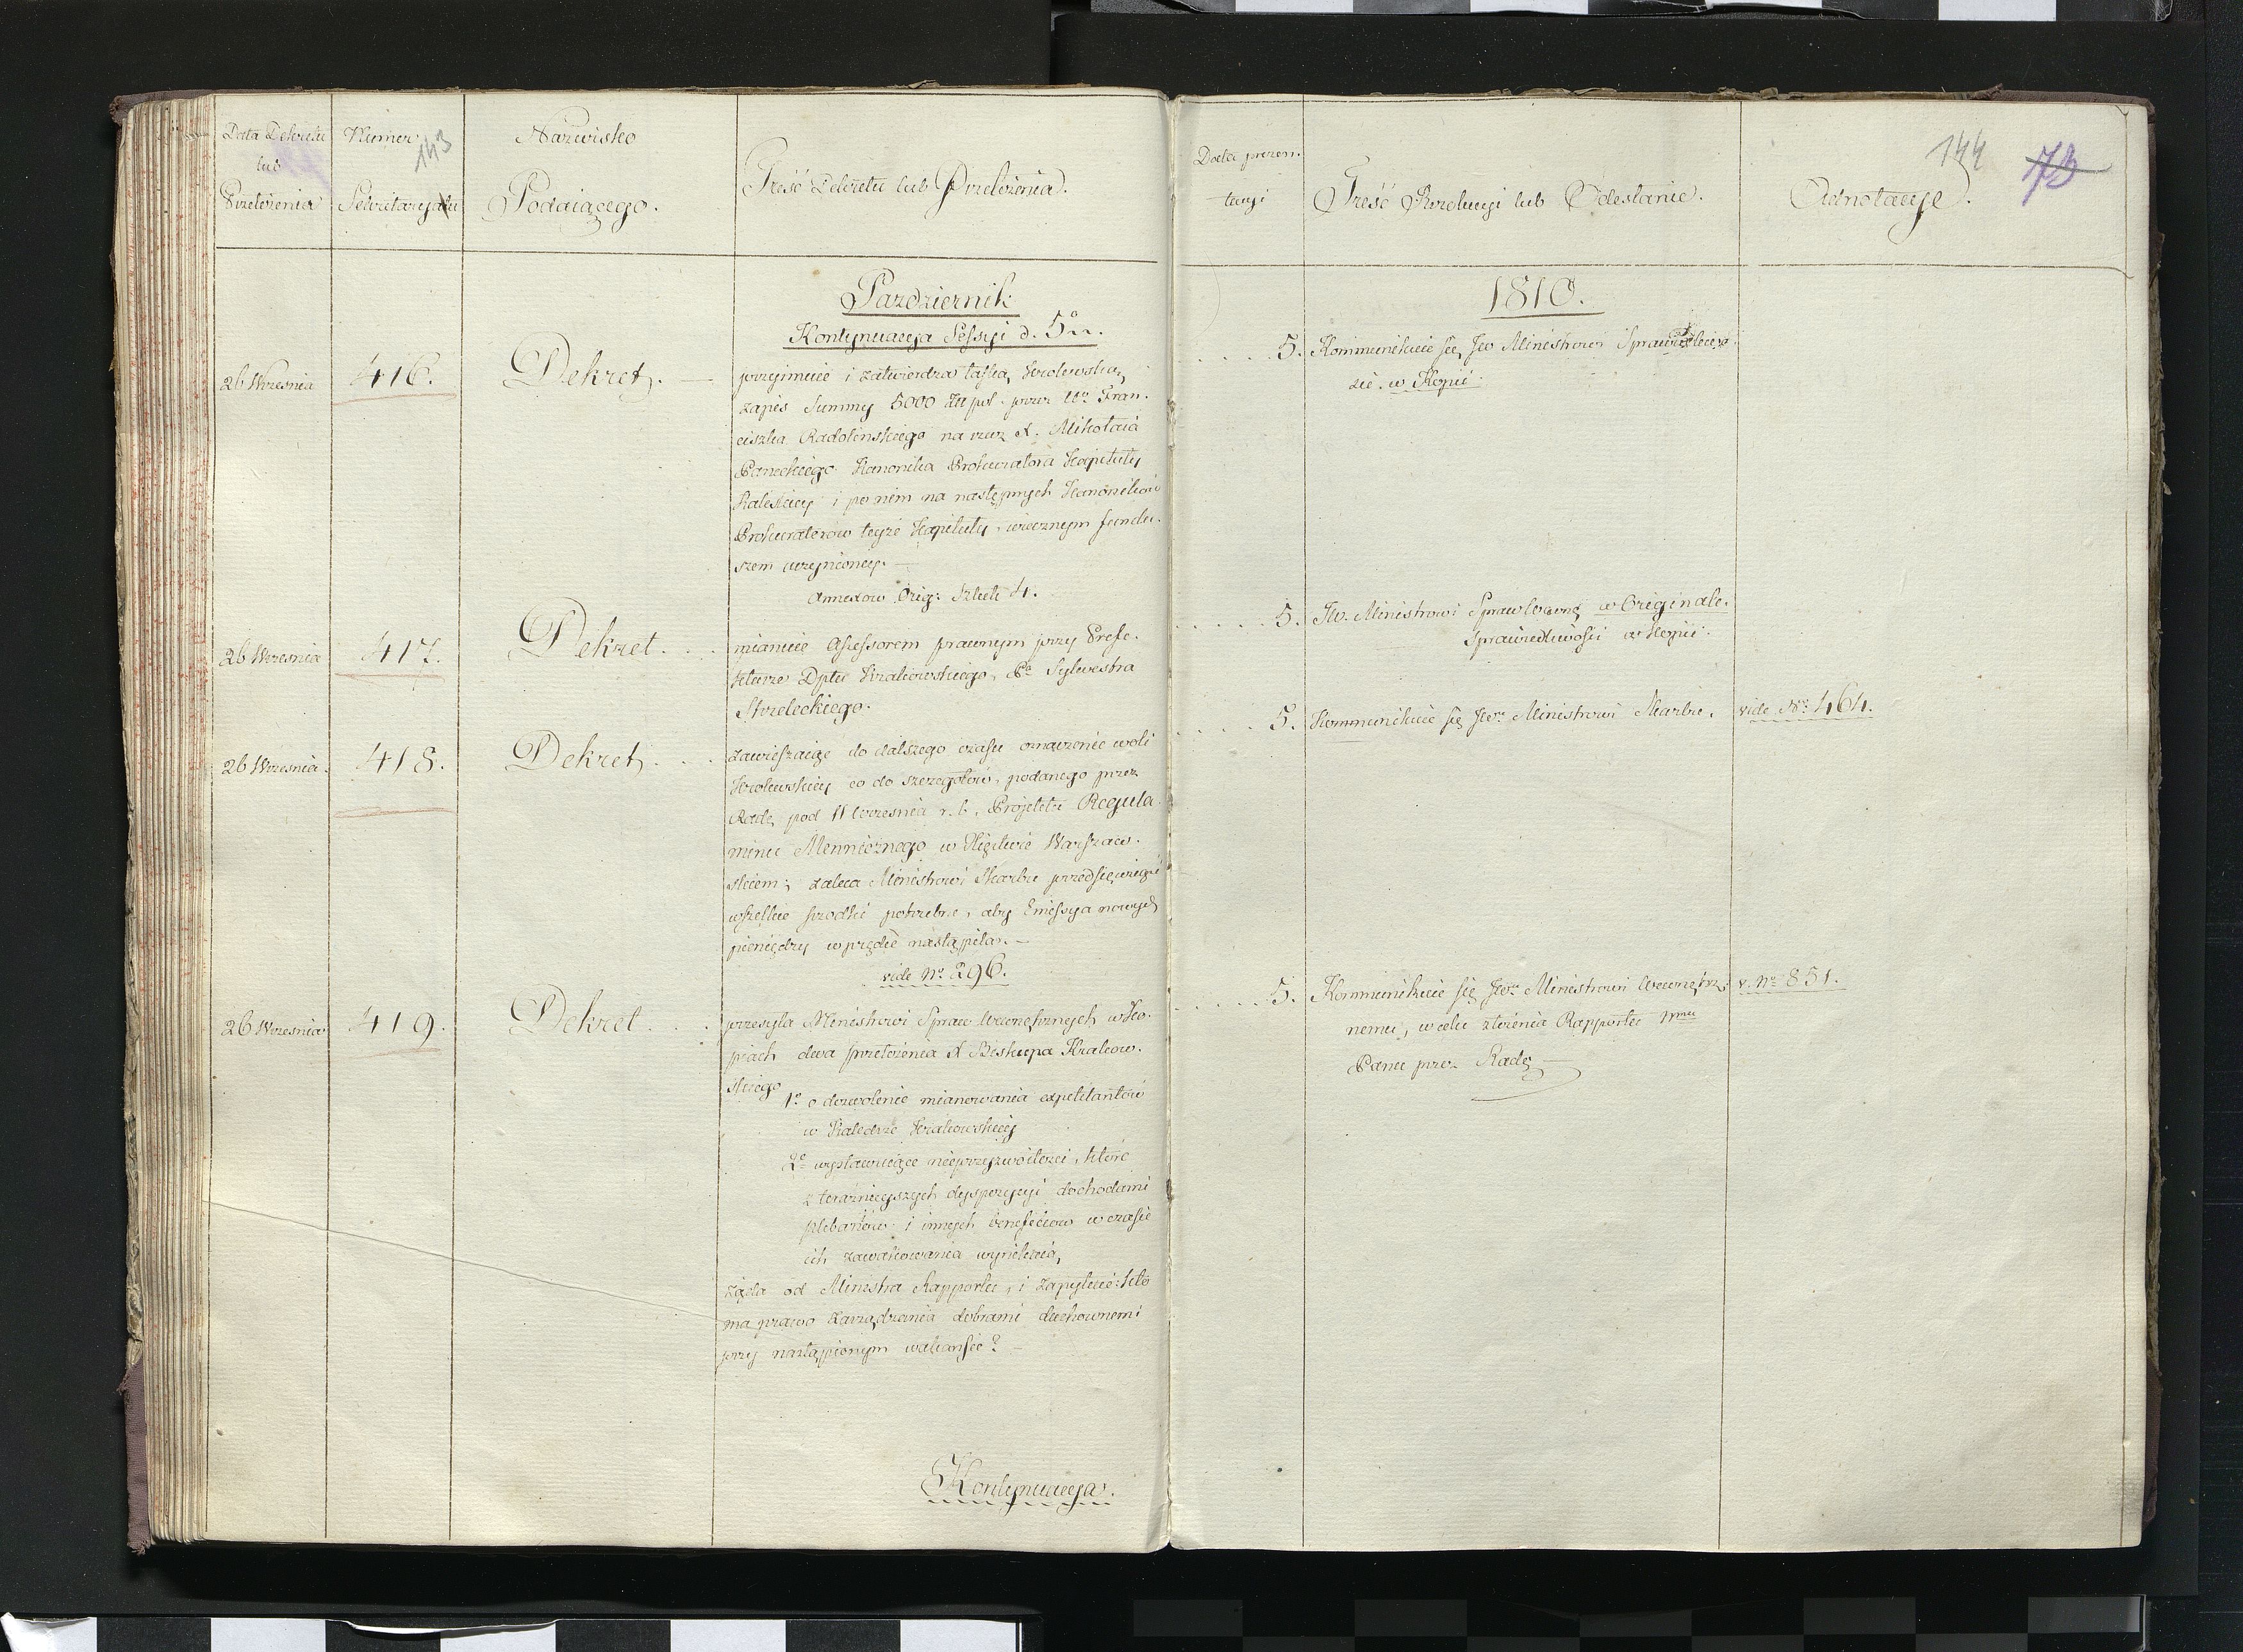 Data Dekretu
lub
Przełożenia
Numer
Sekretaryatu
143
Nazwisko
Podaiącego.
Treść Dekretu lub Przełożenia.
Pazdziernik
Kontynuacya Sessyi d. 5o
26 Wrzesnia
416.
Dekret.
przyimuie i zatwierdza łaską Krolewską
zapis Summy 5000 Złł pol. przez Ur: Fran-
ciszka Radolinskiego na rzecz X. Mikołaia
Kanonika Prokuratora Kapituły
Kaliskiey i po nim na następnych Kanonikow
Prokuratorow teyże Kapituły, wiecznym fundu-
szem uczynioney.
Annexow Orig: Sztuk 4.
26 Wrzesnia
417.
Dekret . . .
mianuie Assessorem prawnym przy Prefe-
kturze Dptu Krakowskiego, Pa Sylwestra
Strzeleckiego.
26 Wrzesnia.
418.
Dekret . . .
zawieszaiąc do dalszego czasu oznaczenie woli
Krolewskiey co do szczegołow, podanego przez
Radę pod 11 Wrzesnia r. b. Projektu Regula-
minu Mennicznego w Xięstwie Warszaw-
skiem; zaleca Ministrowi Skarbu przedsięwziąć
wszelkie srodki potrzebne, aby Emissya nowych
pieniędzy wprędce nastąpiła. —
vide No 296.
26 Wrzesnia
419.
Dekret . . .
przesyła Ministrowi Spraw Wewnętrznych w Ko-
piach dwa przełożenia X Biskupa Krakow-
skiego
1o o dozwolenie mianowania expektantow
w Katedrze Krakowskiey
2o wystawuiące nieprzyzwoitosci, ktore
z teraznieyszych dyspozycyi dochodami
plebanow i innych beneficiow w czasie
ich zawakowania wynikaią,
żąda od Ministra Rapportu, i zapytuie: kto
ma prawo zarządzania dobrami duchownemi
przy nastąpionym wakansie? —
Kontynuacya.
Data prezen-
tacyi
Treść Rezolucyi lub Odesłanie.
Adnotacye.
144
73
1810.
. . . . 5.
Kommunikuie się Jw Ministrowi Sprawiedliwo-
w Kopii.
. . . . . 5.
Jw. Ministrowi Spraw Wewnę w Originale.
Sprawiedliwosci w Kopii.
. . . . 5.
Kommunikuie się Jwu Ministrowi Skarbu.
vide No 464.
. . . . 5.
Kommunikuie się Jwu Ministrowi Wewnętrz-
nemu, w celu złożenia Rapportu Nmu
Panu przez Radę —
v. No 851.